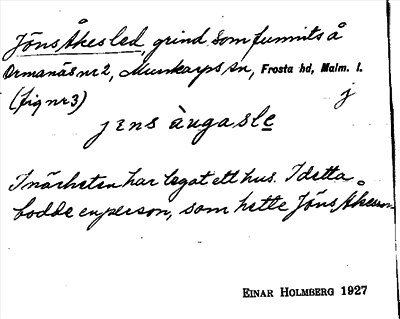 Jöns Åkes led, grind som funnits å
Ormanäs nr 2, Munkarps sn, Frosta hd, Malm. l.
(fig nr 3) j
jens àugasle
I närheten har legat ett hus. I detta
bodde en person, som hette Jöns Åkesson
EINAR HOLMBERG 1927